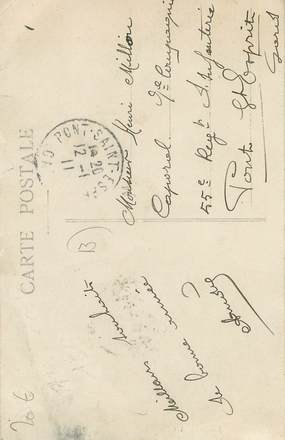 CARTE POSTALE
PONT-SAINT-ES
19 20
12 - 1
11
Monsieur Henri Millon
Caporal 9e Compagnie
55e Regt d'Infanterie
Pont St Esprit
Gard
13
Meilleurs souhaits
de bonne année
20 €